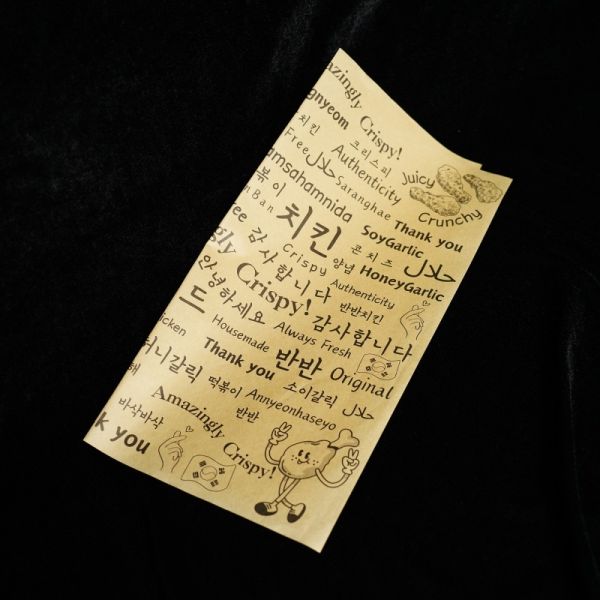 Crispy!
치킨
크리스피
Free
حلال
Authenticity
Juicy
Saranghae
Crunchy
치킨
SoyGarlic
Thank you
감사합니다
Crispy
양념
콘치즈
حلال
HoneyGarlic
Crispy!
Authenticity
반반치킨
안녕하세요
감사합니다
드
Housemade
Always Fresh
Thank you
반반
Original
떡볶이
Annyeonhaseyo
소이갈릭
حلال
바삭바삭
Amazingly
Crispy!
반반
you